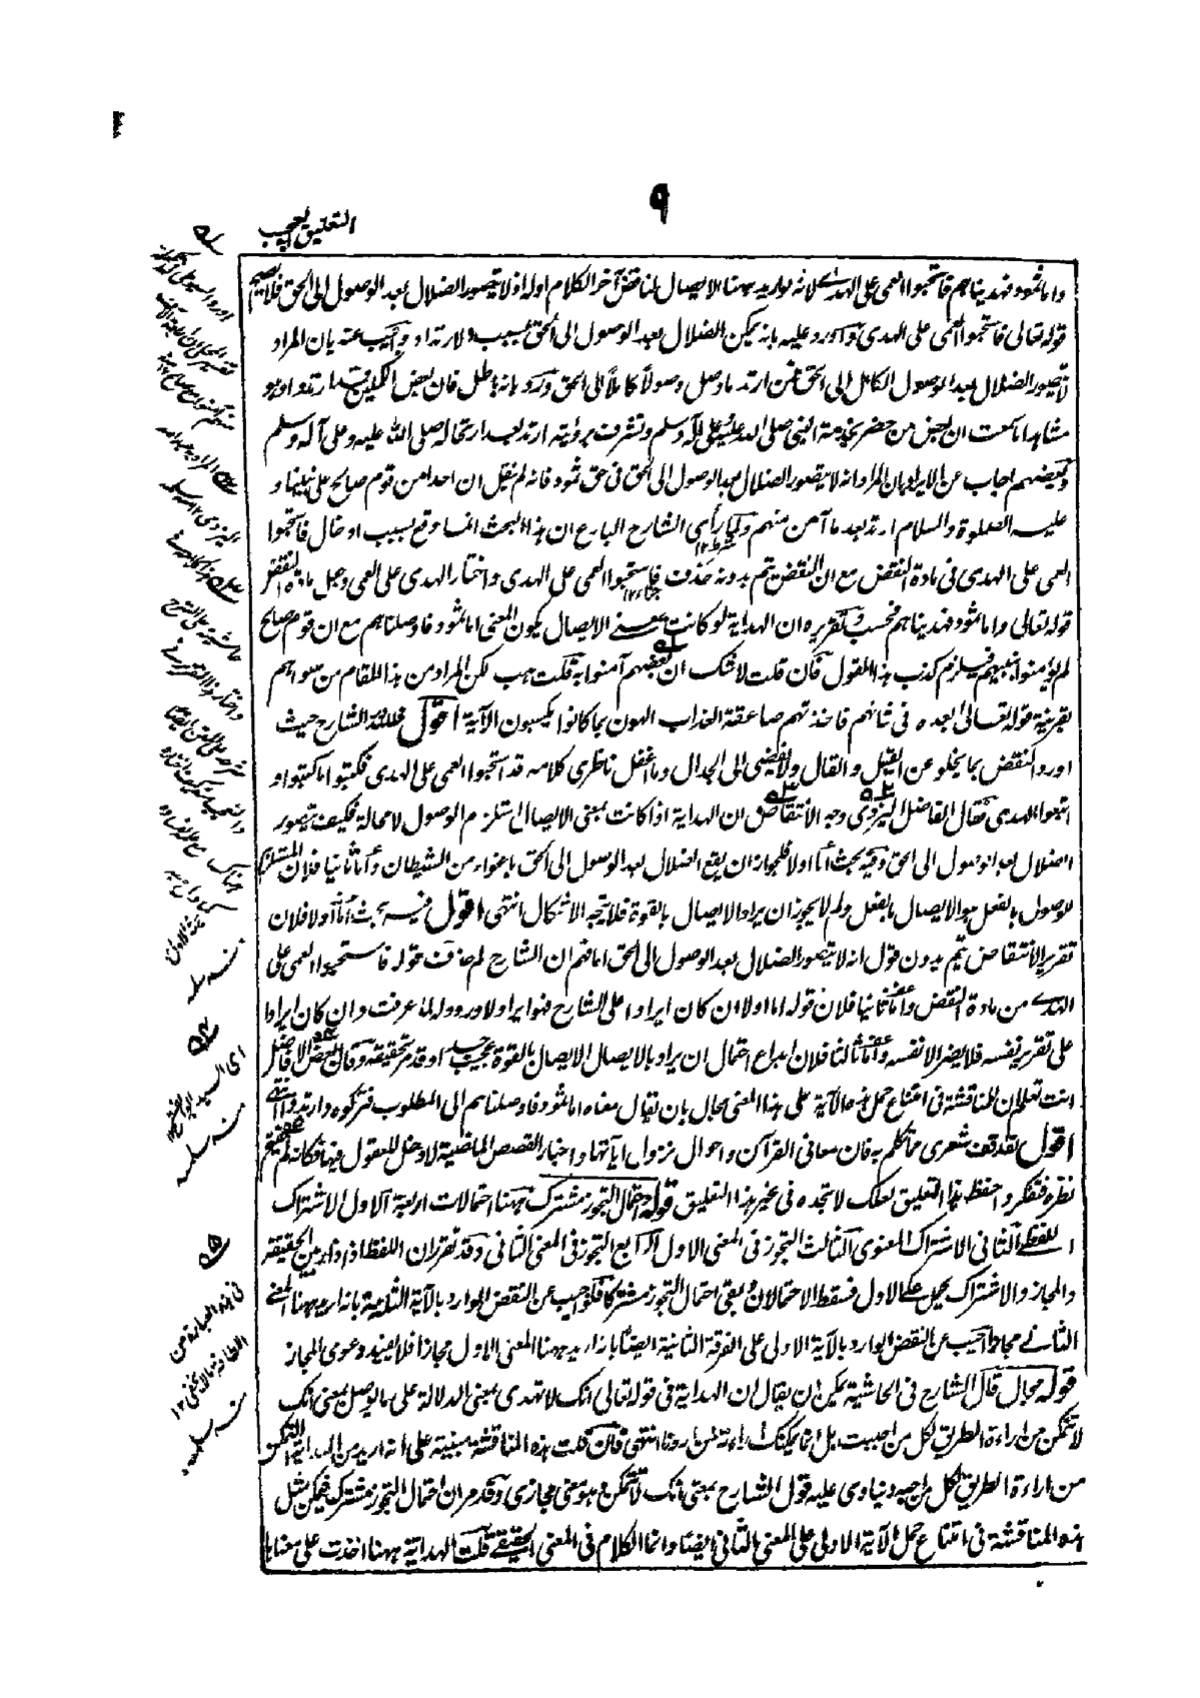 ٩
التعليق العجيب
واما ثمود فهديناهم فاستحبوا العمى على الهدى لانه لو اريد ههنا الايصال لناقض آخر الكلام اوله اذ لا يتصور الضلال بعد الوصول الى الحق فلا يصح
قوله تعالى فاستحبوا العمى على الهدى واورد عليه بانه يمكن الضلال بعد الوصول الى الحق بسبب الارتداد واجيب عنه بان المراد
لا يتصور الضلال بعد الوصول الكامل الى الحق فمن ارتد ما وصل وصولا كاملا الى الحق ورد بانه باطل فان بعض الكملين قد ارتدوا وهو
مشاهد اما سمعت ان بعض من حضر بخدمة النبي صلى الله عليه وعلى آله وسلم وتشرف برؤيته ارتد بعد ارتحاله صلى الله عليه وعلى آله وسلم
وبعضهم اجاب عن الايراد بان المراد انه لا يتصور الضلال بعد الوصول الى الحق في حق ثمود فانه لم ينقل ان احدا من قوم صالح على نبينا و
عليه الصلوة والسلام ارتد بعد ما آمن منهم ولما رأى الشارح البارع ان هذا البحث انما وقع بسبب ادخال فاستحبوا
العمى على الهدى في مادة النقض مع ان النقض يتم بدونه حذف فاستحبوا العمى على الهدى واختار الهدى على العمى وجعل مادة النقض
قوله تعالى واما ثمود فهديناهم فحسب وتقريره ان الهداية لو كانت بمعنى الايصال يكون المعنى اما ثمود فاوصلناهم مع ان قوم صالح
لم يؤمنوا بنبيهم فيلزم كذب هذا المقول فان قلت لا شك ان بعضهم آمنوا به قلت هب لكن المراد من هذا المقام من سواهم
بقرينة قوله تعالى بعده في شانهم فاخذتهم صاعقة العذاب الهون بما كانوا يكسبون الآية اقول فلله الشارح حيث
اورد النقض بما يخلو عن القيل والقال ولا يفضي الى الجدال وما اغفل ناظرى كلامه قد استحبوا العمى على الهدى فكتبوا ما كتبوا و
اتبعوا الهدى فقال الفاضل اليزدى وجه الانتقاض ان الهداية اذا كانت بمعنى الايصال تستلزم الوصول لا محالة فكيف يتصور
الضلال بعد الوصول الى الحق وفيه بحث اما اولا فلجواز ان يقع الضلال بعد الوصول الى الحق باغواء من الشيطان واما ثانيا فلان المستلزم
للوصول بالفعل هو الايصال بالفعل ولم لا يجوز ان يراد الايصال بالقوة فلا يتجه الاشكال انتهى اقول فيه بحث اما اولا فلان
تقرير الانتقاض يتم بدون قول انه لا يتصور الضلال بعد الوصول الى الحق اما فهم ان الشارح لم حذف قوله فاستحبوا العمى على
الهدى من مادة النقض واما ثانيا فلان قوله اما اولا ان كان ايرادا على الشارح فهو ايراد لا ورود له لما عرفت وان كان ايرادا
على تقرير نفسه فلا يضر الا نفسه واما ثالثا فلان ابداع احتمال ان يراد بالايصال الايصال بالقوة عجيب وقد مر تحقيقه وقال بعض الافاضل
انت تعلم ان للمناقشة في امتناع حمل هذه الآية على هذا المعنى مجال بان يقال معناه اما ثمود فاوصلناهم الى المطلوب فتركوه وارتدوا انتهى
اقول لقد قف شعرى مما تكلم به فان معاني القرآن واحوال نزول آياتها واخبار القصص الماضية لا دخل للعقول فيها فكانه لم يعمق
نظره فتفكر واحفظ هذا التعليق لعلك لا تجده في غير هذا التعليق قوله احتمال التجوز مشترك ههنا احتمالات اربعة الاول الاشتراك
اللفظي الثاني الاشتراك المعنوي الثالث التجوز في المعنى الاول الرابع التجوز في المعنى الثاني وقد تقرر ان اللفظ اذا دار بين الحقيقة
والمجاز والاشتراك يحمل على الاول فسقط الاحتمالان وبقي احتمال التجوز مشتركا فلو اجيب عن النقض الوارد بالآية الثانية بانه اريد ههنا المعنى
الثاني مجازا اجيب عن النقض الوارد بالآية الاولى على الفرقة الثانية ايضا بانه اريد ههنا المعنى الاول مجازا فلا يفيد دعوى المجاز
قوله مجال قال الشارح في الحاشية يمكن ان يقال ان الهداية في قوله تعالى انك لا تهدى بمعنى الدلالة على ما يوصل بمعنى انك
لا تتمكن من اراءة الطريق لكل من احببت بل انما يمكنك اراءته لمن اردنا انتهى فان قلت هذه المناقشة مبنية على انه اريد من الهداية التمكن
من اراءة الطريق لكل من احبه وينادى عليه قول الشارح بمعنى انك لا تتمكن وهو معنى مجازى وقد مر ان احتمال التجوز مشترك فيمكن مثل
هذه المناقشة في امتناع حمل الآية الاولى على المعنى الثاني ايضا وانما الكلام في المعنى الحقيقي قلت الهداية ههنا اخذت على معناها
اى السيد
منه سلمه
في هذه العبارة من
اللطافة ما لا يخفى ١٢
منه سلمه